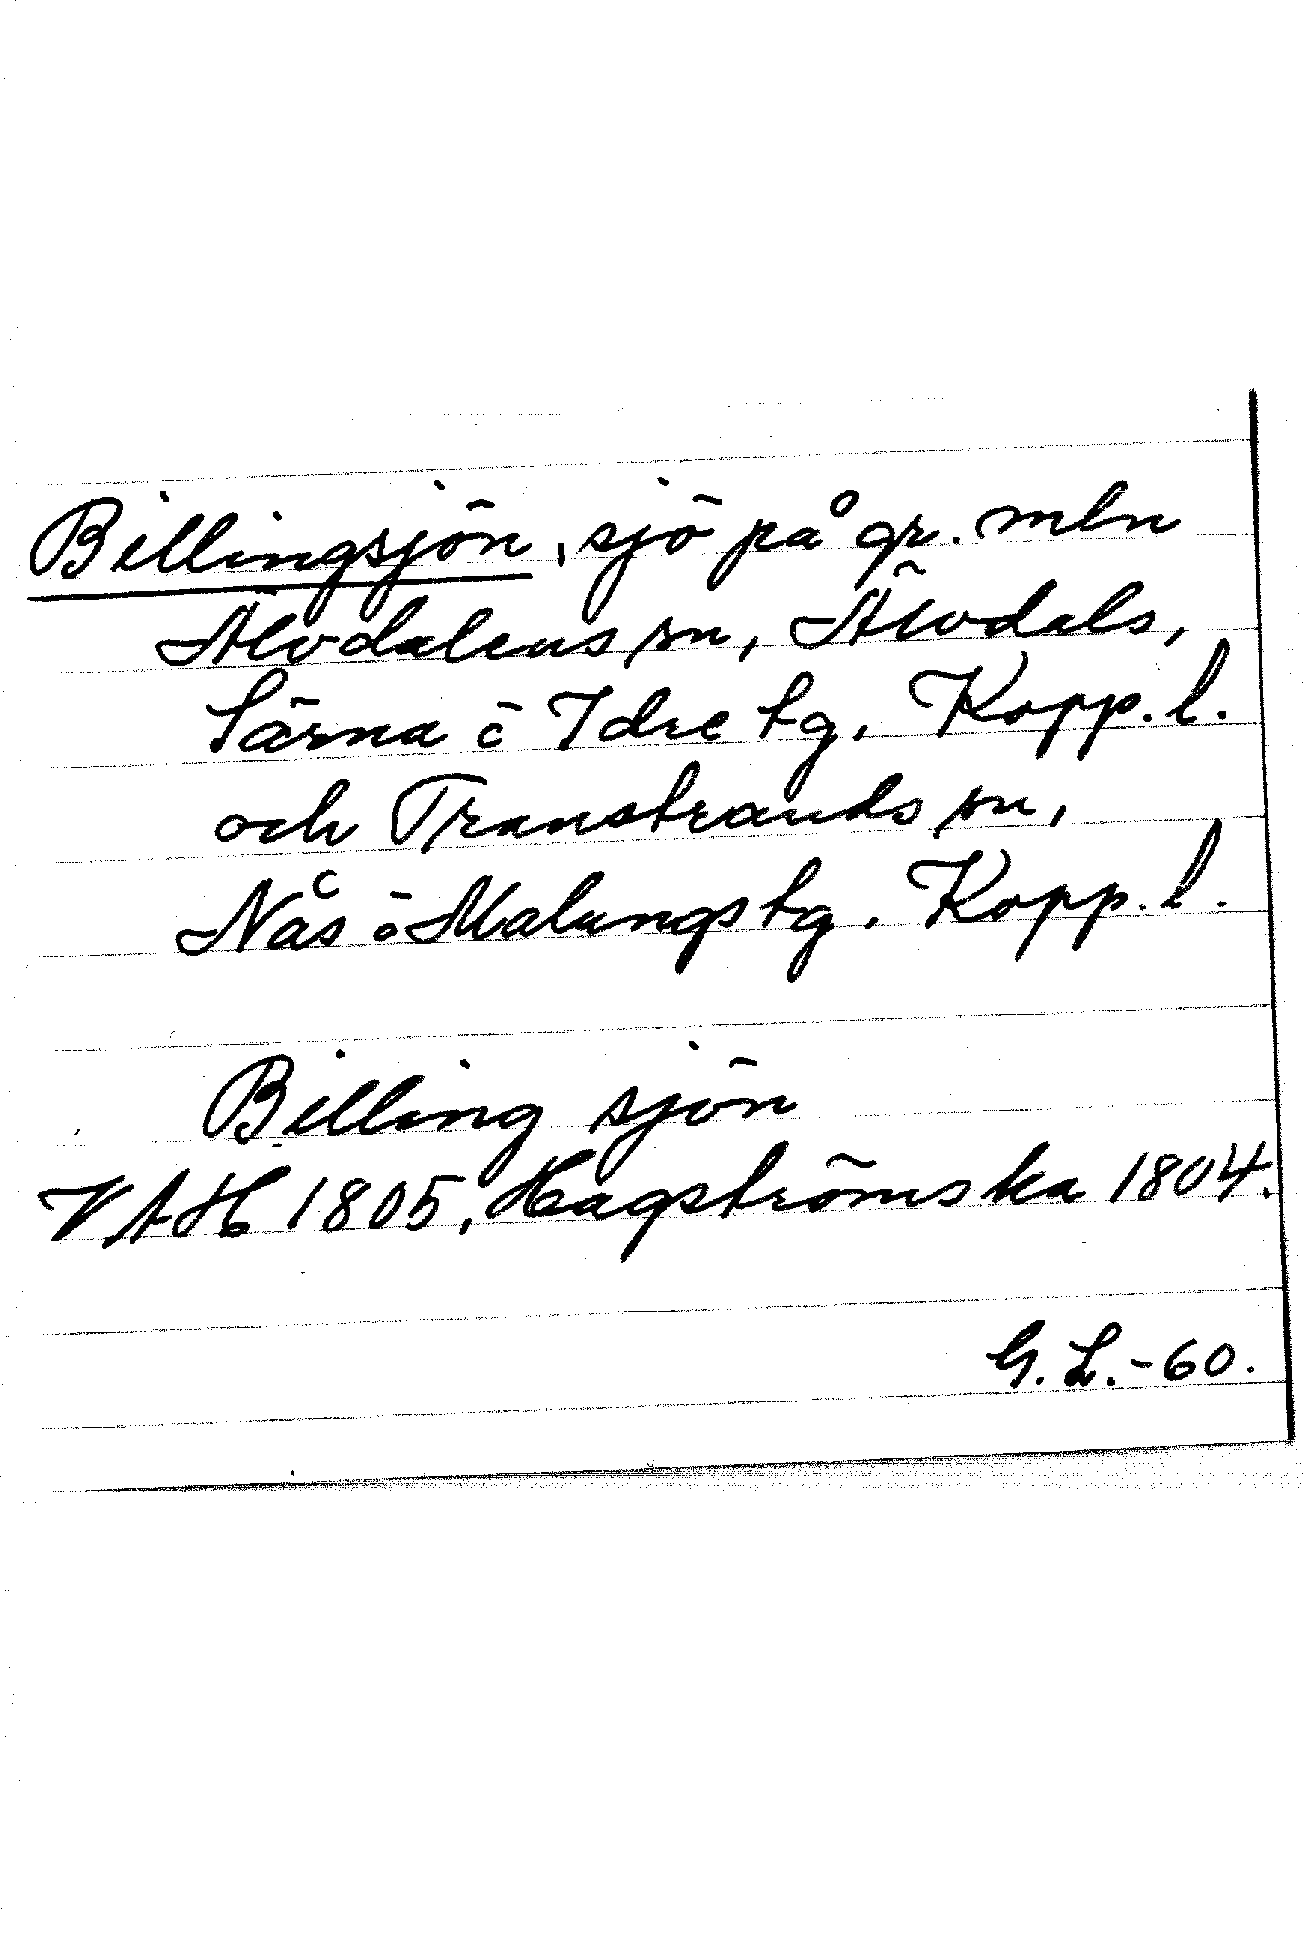 Billingsjön, sjö på gr. mln
Älvdalens sn, Älvdals,
Särna o Idre tg. Kopp. l.
och Transtrands sn,
Nås o Malungs tg. Kopp. l.
Billing sjön
VAH 1805, Hagströmska 1804.
G. L. -60.